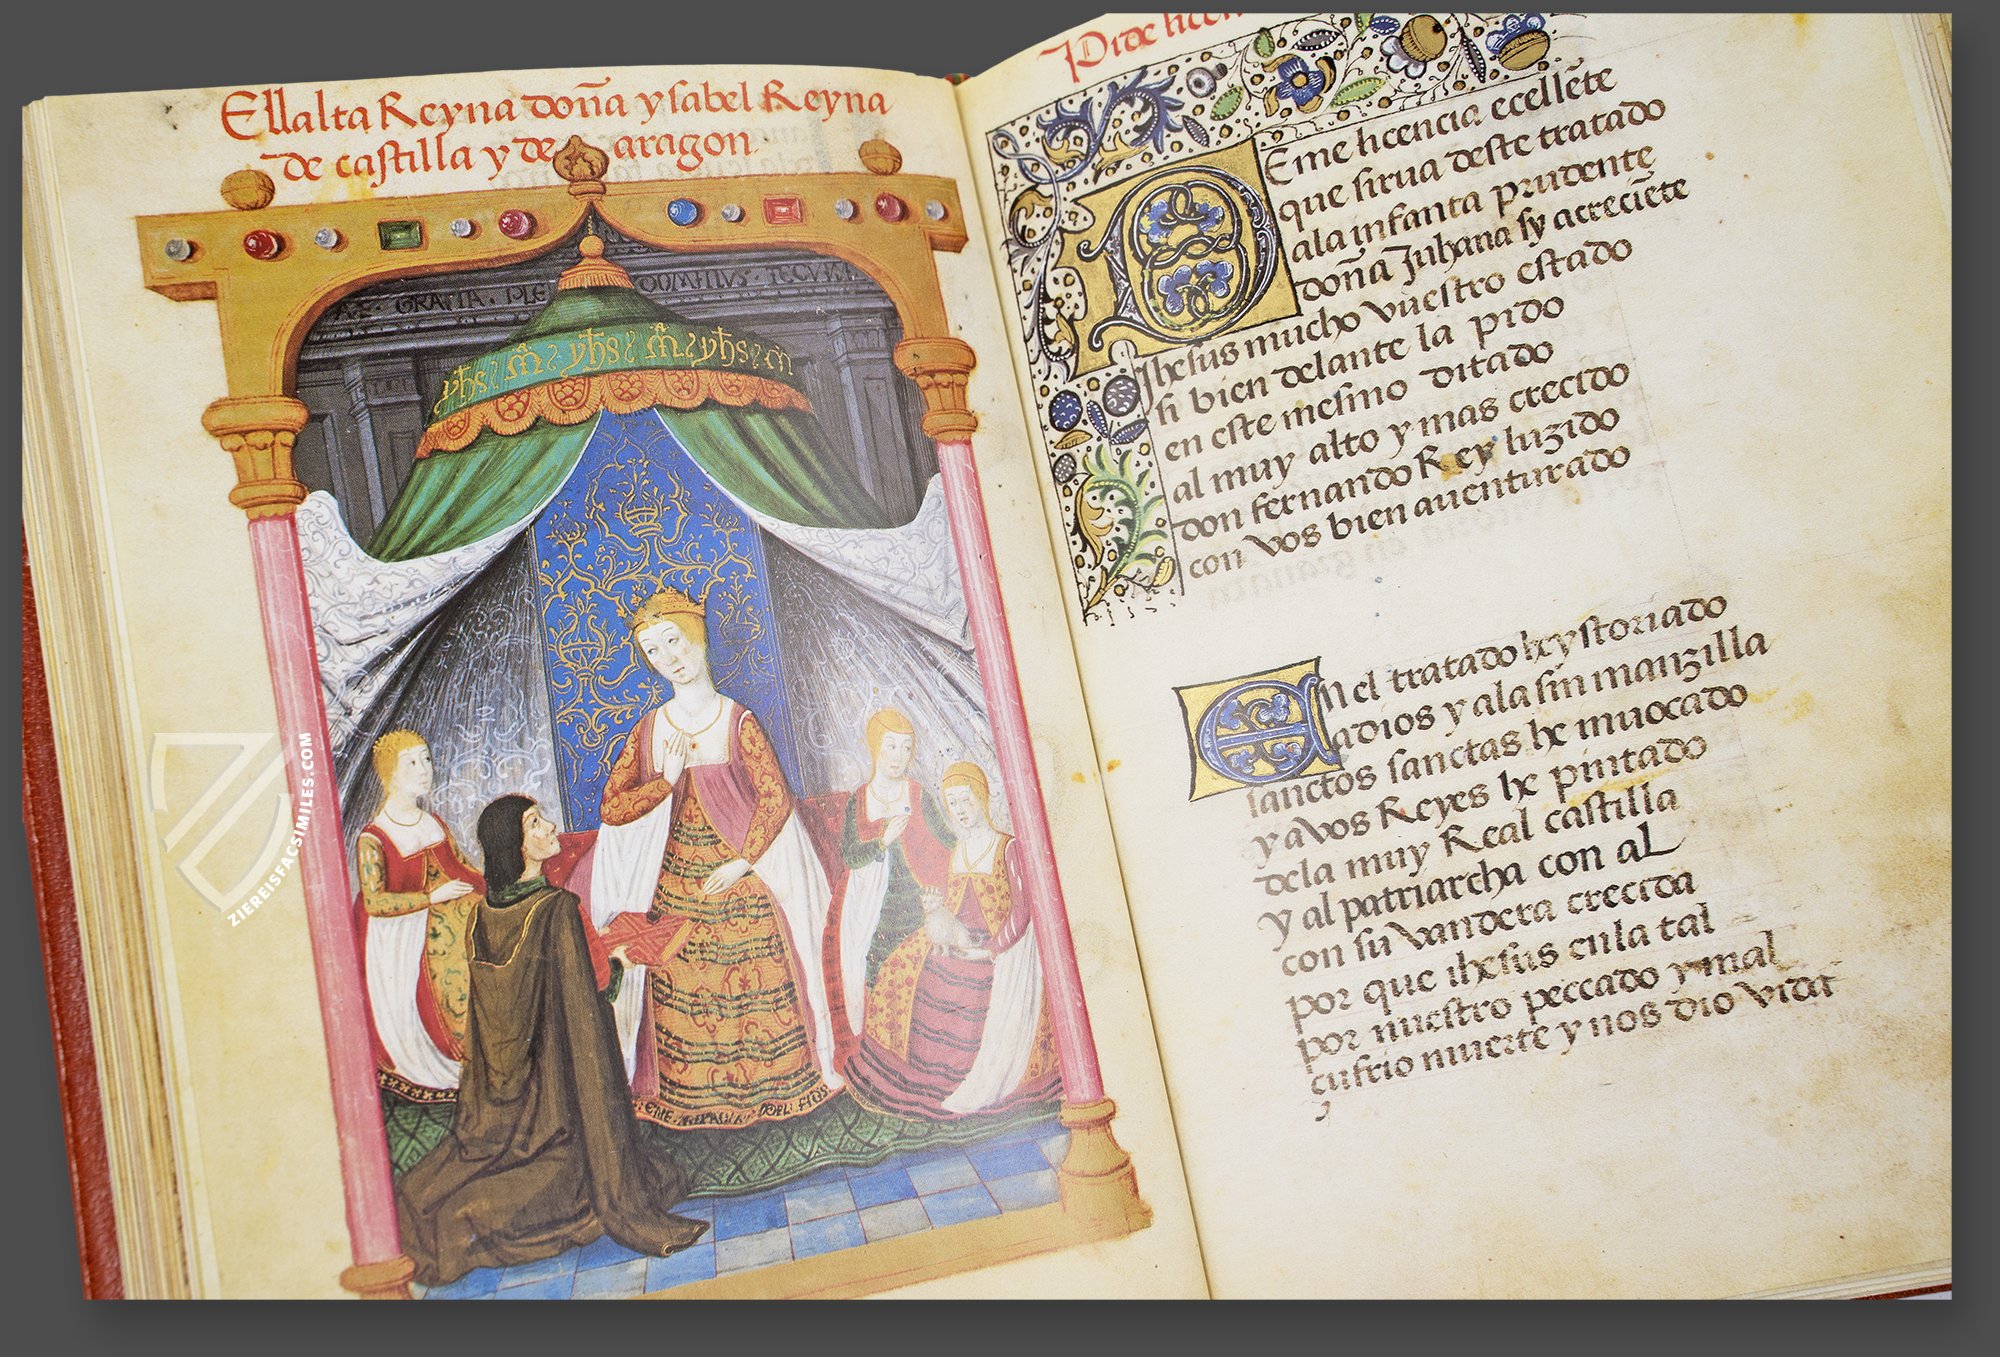 Ellalta Reyna doña ysabel Reyna
de castilla y de aragon
GRATIA · PLE DOMINVS · TECVM
yħs m̃ yħs m̃ yħs m̃
ZIEREISFACSIMILES.COM
Pide licen
DEme licencia ecellẽte
que sirua deste tratado
ala infanta prudente
doña Juhana sy acreciẽte
Jhesus mucho vuestro estado
si bien delante la pido
en este mesmo ditado
al muy alto y mas crecido
don fernando Rey luzido
con vos bien auenturado
En el tratado hystoriado
adios y ala sin manzilla
sanctos sanctas he inuocado
y avos Reyes he pintado
dela muy Real castilla
y al patriarcha con al
con su vandera crecida
por que ihesus enla tal
por nuestro peccado y mal
cufrio muerte y nos dio vida